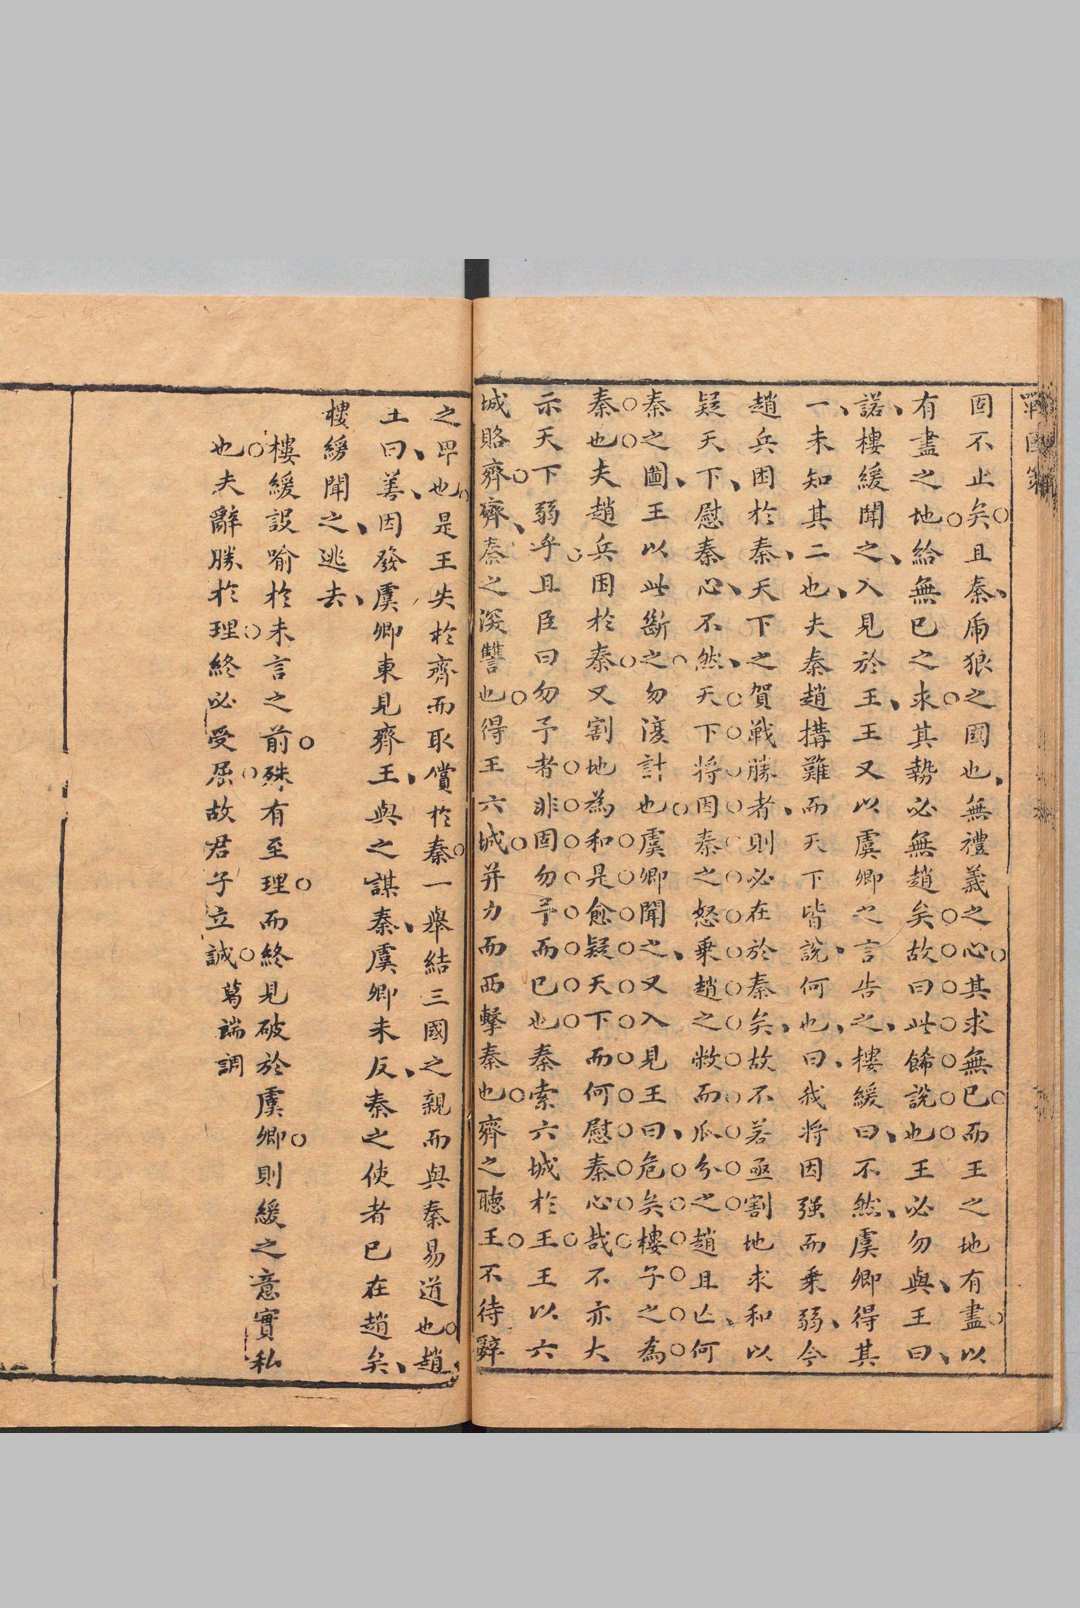 戰國策
固不止矣且秦虎狼之國也無禮義之心其求無已而王之地有盡以
有盡之地給無已之求其勢必無趙矣故曰此餙說也王必勿與王曰
諾樓緩聞之入見於王王又以虞卿之言告之樓緩曰不然虞卿得其
一未知其二也夫秦趙搆難而天下皆說何也曰我將因强而乗弱今
趙兵困於秦天下之賀戰勝者則必在於秦矣故不若亟割地求和以
疑天下慰秦心不然天下将因秦之怒乗趙之敝而瓜分之趙且亡何
秦之圖王以此斷之勿復計也虞卿聞之又入見王曰危矣樓子之為
秦也夫趙兵困於秦又割地為和是愈疑天下而何慰秦心哉不亦大
示天下弱乎且臣曰勿予者非固勿予而已也秦索六城於王王以六
城賂齊齊秦之深讐也得王六城并力而西擊秦也齊之聴王不待辭
之畢也是王失於齊而取償於秦一舉結三國之親而與秦易道也趙
王曰善因發虞卿東見齊王與之謀秦虞卿未反秦之使者已在趙矣
樓緩聞之逃去
樓緩設喻於未言之前殊有至理而終見破於虞卿則緩之意實私
也夫辭勝於理終必受屈故君子立誠 葛端調